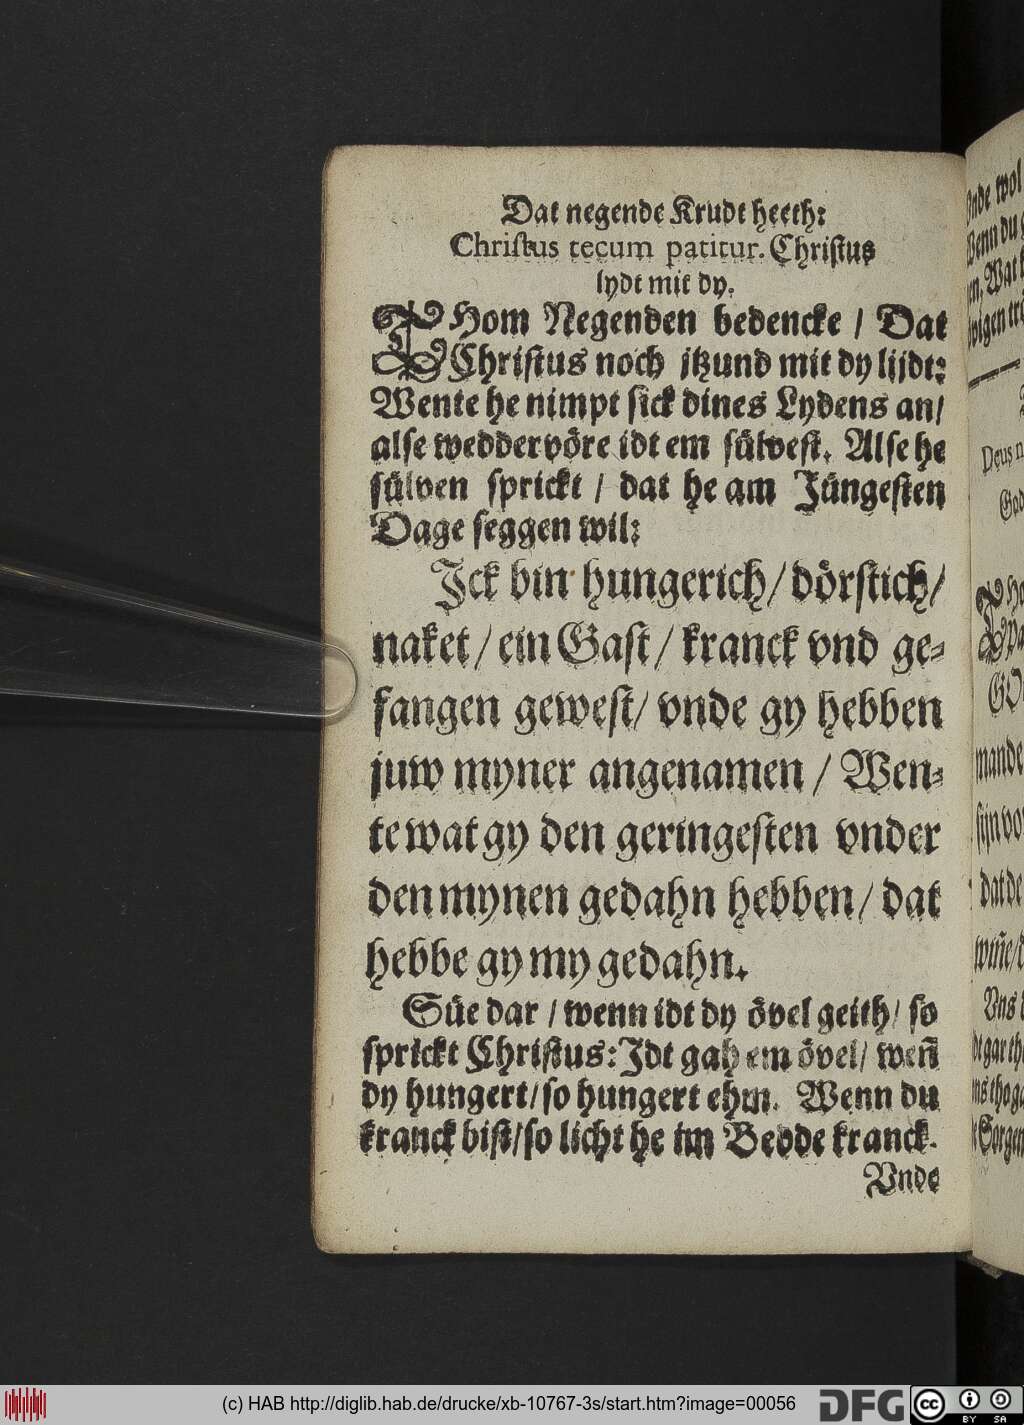 Dat negende Krudt heeth:
Christus tecum patitur. Christus
lydt mit dy.
THom Negenden bedencke / Dat
Christus noch jtzund mit dy lijdt:
Wente he nimpt sick dines Lydens an/
alse wedder vöre idt em sülvest. Alse he
sülven sprickt / dat he am Jüngesten
Dage seggen wil:
Jck bin hungerich/ dörstich/
naket / ein Gast / kranck vnd ge-
fangen gewest/ vnde gy hebben
juw myner angenamen / Wen-
te wat gy den geringesten vnder
den mynen gedahn hebben/ dat
hebbe gy my gedahn.
Süe dar / wenn idt dy övel geith/ so
sprickt Christus: Jdt gah em övel/ weñ
dy hungert/ so hungert ehm. Wenn du
kranck bist/ so licht he im Bedde kranck.
Vnde
(c) HAB http://diglib.hab.de/drucke/xb-10767-3s/start.htm?image=00056
DFG
cc BY SA